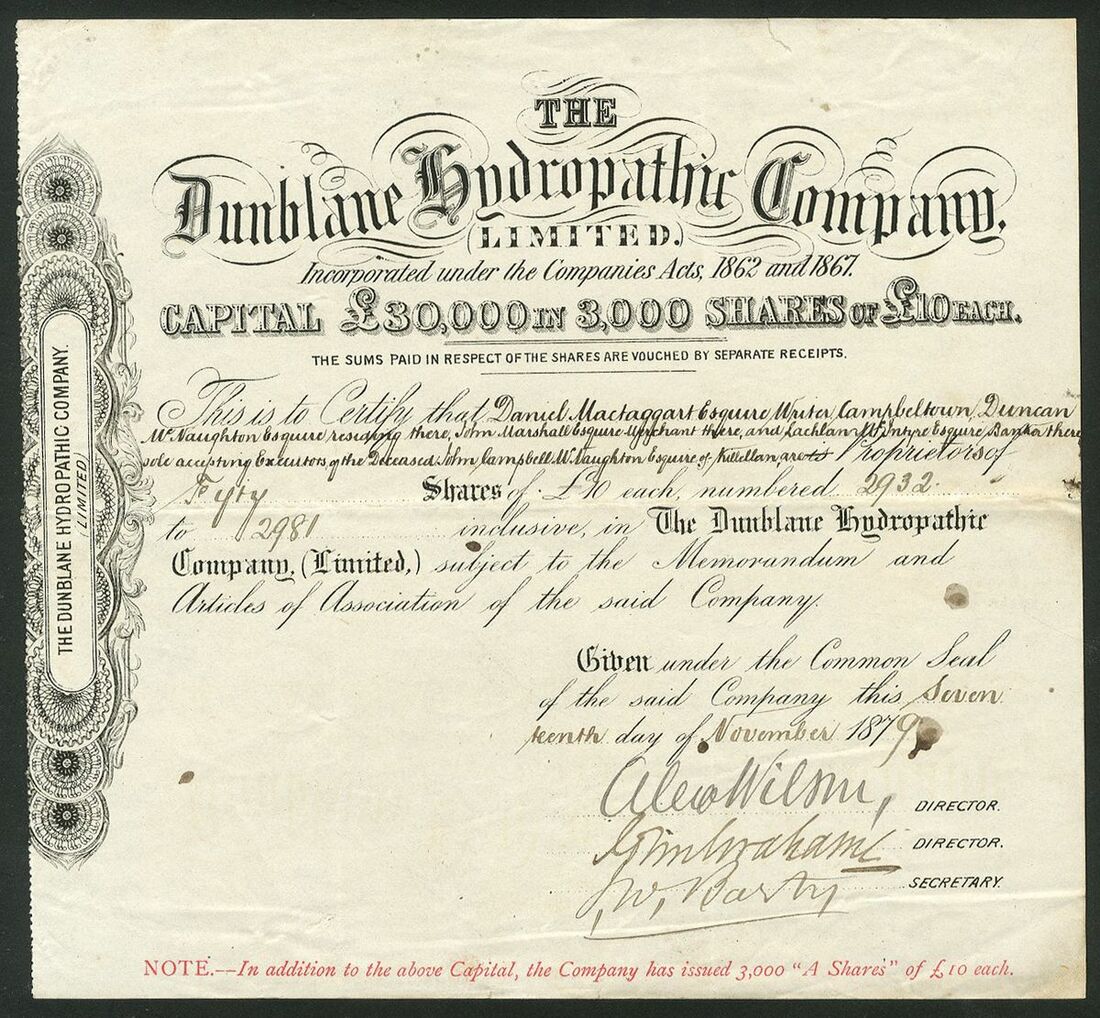 THE
Dunblane Hydropathic Company,
(LIMITED.)
Incorporated under the Companies Acts, 1862 and 1867.
CAPITAL £30,000 IN 3,000 SHARES OF £10 EACH.
THE SUMS PAID IN RESPECT OF THE SHARES ARE VOUCHED BY SEPARATE RECEIPTS.
This is to Certify that Daniel Mactaggart Esquire Writer Campbeltown, Duncan
McNaughton Esquire residing there, John Marshall Esquire Merchant there, and Lachlan McIntyre Esquire Banker there
sole accepting Executors of the Deceased John Campbell McNaughton Esquire of Killellan, are is Proprietors of
Fifty Shares of £10 each, numbered 2932
to 2981 inclusive, in The Dunblane Hydropathic
Company, (Limited,) subject to the Memorandum and
Articles of Association of the said Company.
Given under the Common Seal
of the said Company this Seven
teenth day of November 1879
Alex Wilson, DIRECTOR.
John Graham DIRECTOR.
J, W, Barty SECRETARY.
NOTE.—In addition to the above Capital, the Company has issued 3,000 "A Shares" of £10 each.
THE DUNBLANE HYDROPATHIC COMPANY.
(LIMITED)